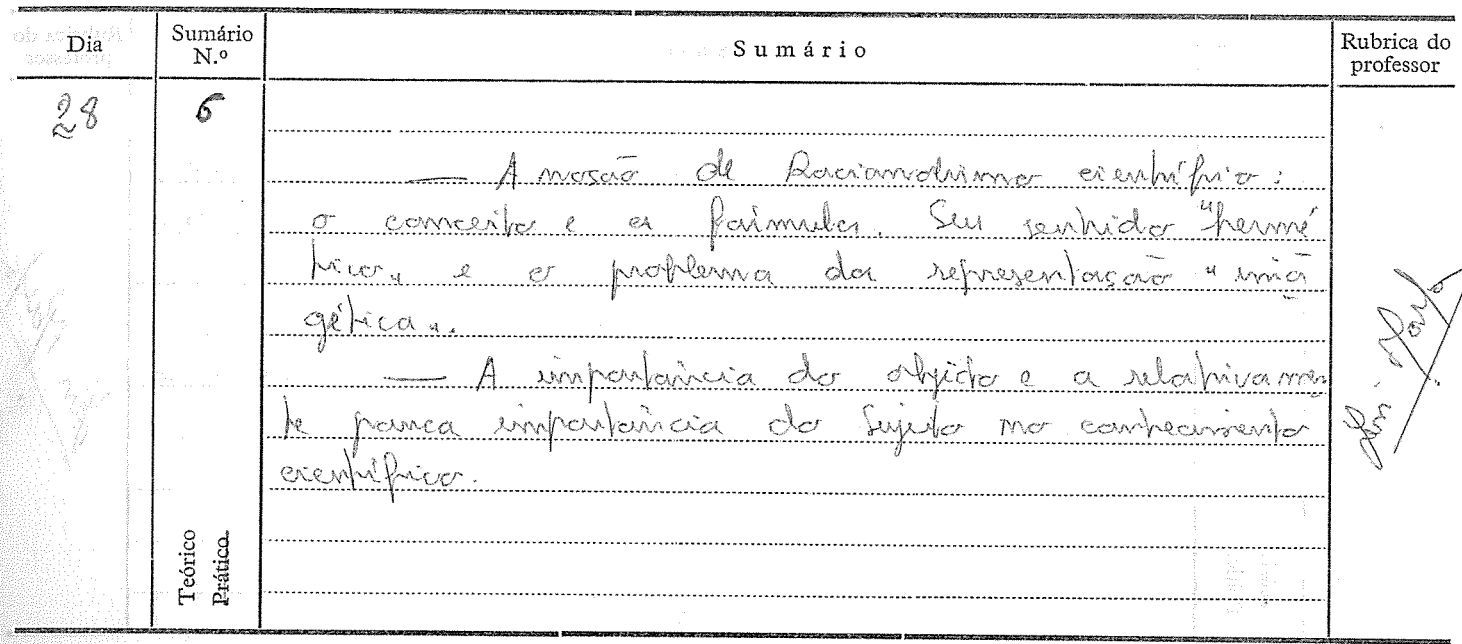 Dia
Sumário N.º
Sumário
Rubrica do professor
28
6
— A noção de Racionalismo científico:
o conceito e a fórmula. Seu sentido "hermé
tico" e o problema da representação "ima
gética".
— A importância do objecto e a relativamen
te pouca importância do Sujeito no conhecimento
científico.
Teórico
Prático